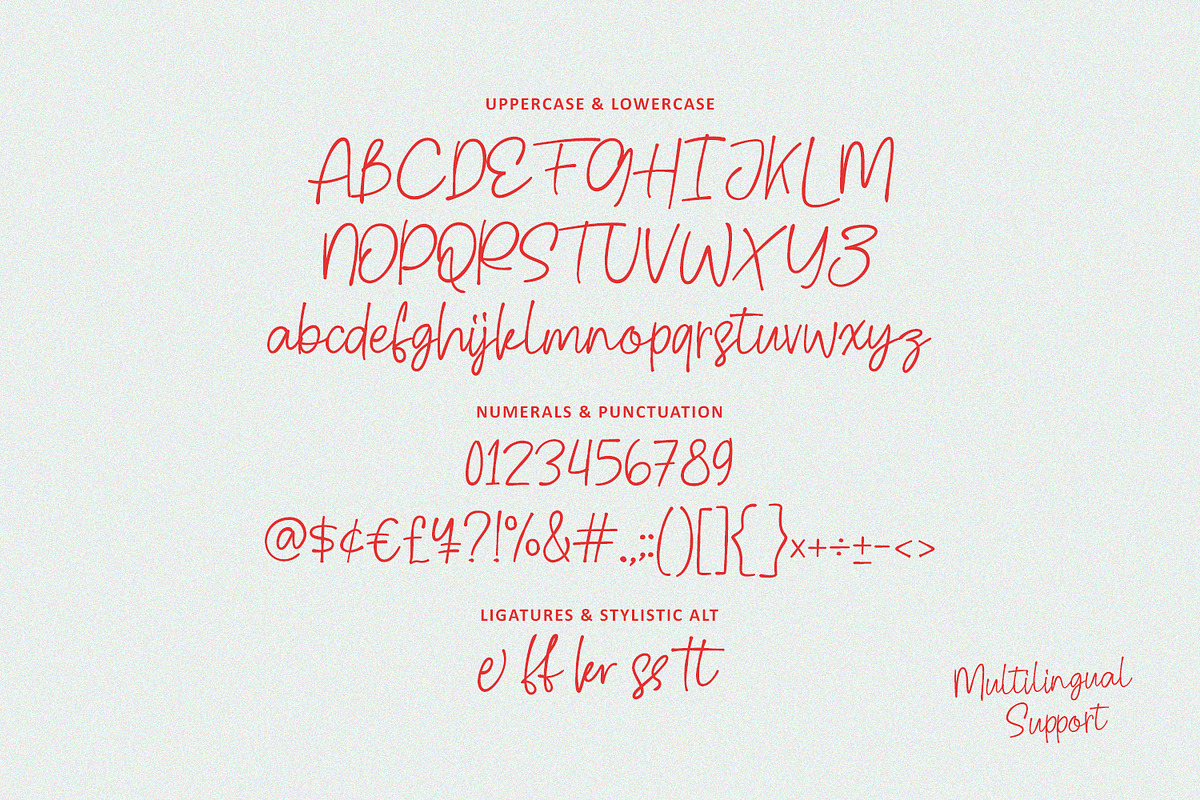 UPPERCASE & LOWERCASE
ABCDEFGHIJKLM
NOPQRSTUVWXYZ
abcdefghijklmnopqrstuvwxyz
NUMERALS & PUNCTUATION
0123456789
@$¢€£¥?!%&#.,;:()[]{}×+÷±−<>
LIGATURES & STYLISTIC ALT
e ff kr ss tt
Multilingual
Support